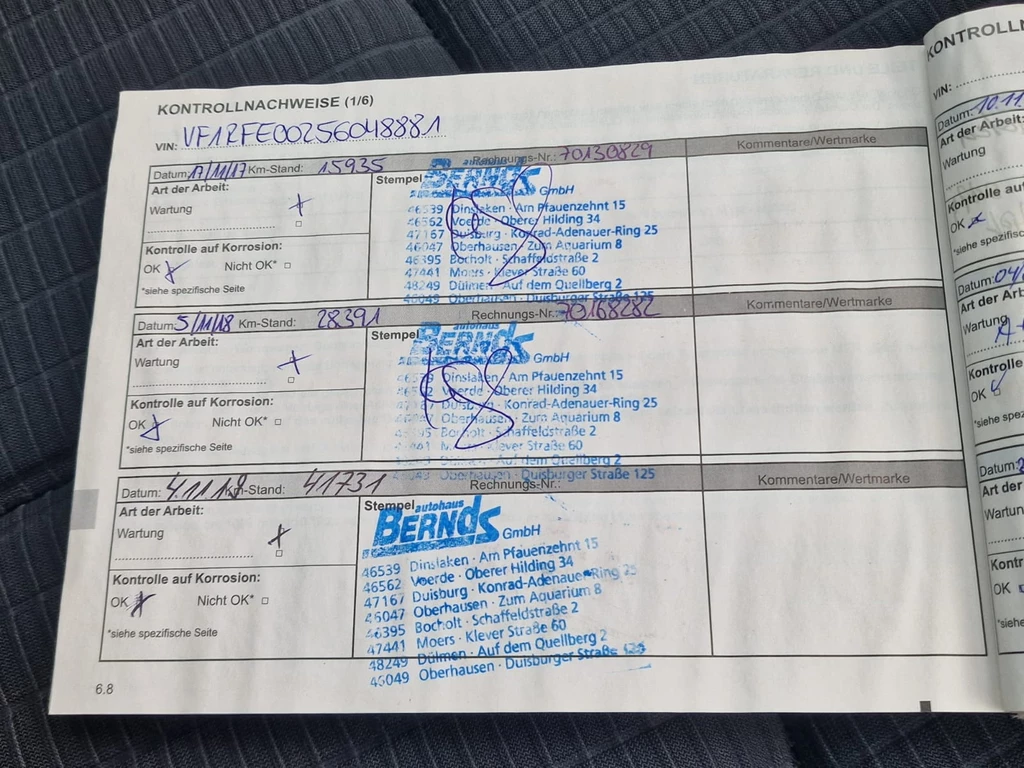 KONTROLLNACHWEISE (1/6)
VIN: VF1RFE00256048881
Datum: 17/11/17 Km-Stand: 15935 Rechnungs-Nr.: 70130829 Kommentare/Wertmarke
Art der Arbeit:
Wartung
Kontrolle auf Korrosion:
OK Nicht OK*
*siehe spezifische Seite
Stempel autohaus
BERNDS GmbH
46539 Dinslaken · Am Pfauenzehnt 15
46562 Voerde · Oberer Hilding 34
47167 Duisburg · Konrad-Adenauer-Ring 25
46047 Oberhausen · Zum Aquarium 8
46395 Bocholt · Schaffeldstraße 2
47441 Moers · Klever Straße 60
48249 Dülmen · Auf dem Quellberg 2
46049 Oberhausen · Duisburger Straße 125
Datum: 5/11/18 Km-Stand: 28391 Rechnungs-Nr.: 70168282 Kommentare/Wertmarke
Art der Arbeit:
Wartung
Kontrolle auf Korrosion:
OK Nicht OK*
*siehe spezifische Seite
Stempel autohaus
BERNDS GmbH
Dinslaken · Am Pfauenzehnt 15
Voerde · Oberer Hilding 34
Duisburg · Konrad-Adenauer-Ring 25
Oberhausen · Zum Aquarium 8
Bocholt · Schaffeldstraße 2
Moers · Klever Straße 60
Dülmen · Auf dem Quellberg 2
Oberhausen · Duisburger Straße 125
Datum: 4.11.19 Km-Stand: 41731 Rechnungs-Nr.: Kommentare/Wertmarke
Art der Arbeit:
Wartung
Kontrolle auf Korrosion:
OK Nicht OK*
*siehe spezifische Seite
Stempel autohaus
BERNDS GmbH
46539 Dinslaken · Am Pfauenzehnt 15
46562 Voerde · Oberer Hilding 34
47167 Duisburg · Konrad-Adenauer-Ring 25
46047 Oberhausen · Zum Aquarium 8
46395 Bocholt · Schaffeldstraße 2
47441 Moers · Klever Straße 60
48249 Dülmen · Auf dem Quellberg 2
46049 Oberhausen · Duisburger Straße 125
6.8
KONTROLLN
VIN:
Datum: 10.11
Art der Arbeit:
Wartung
Kontrolle auf
OK
*siehe spezifisc
Datum: 04/
Art der Arb
Wartung
Kontrolle
OK
*siehe spez
Datum:
Art der
Wartun
Kontr
OK
*siehe